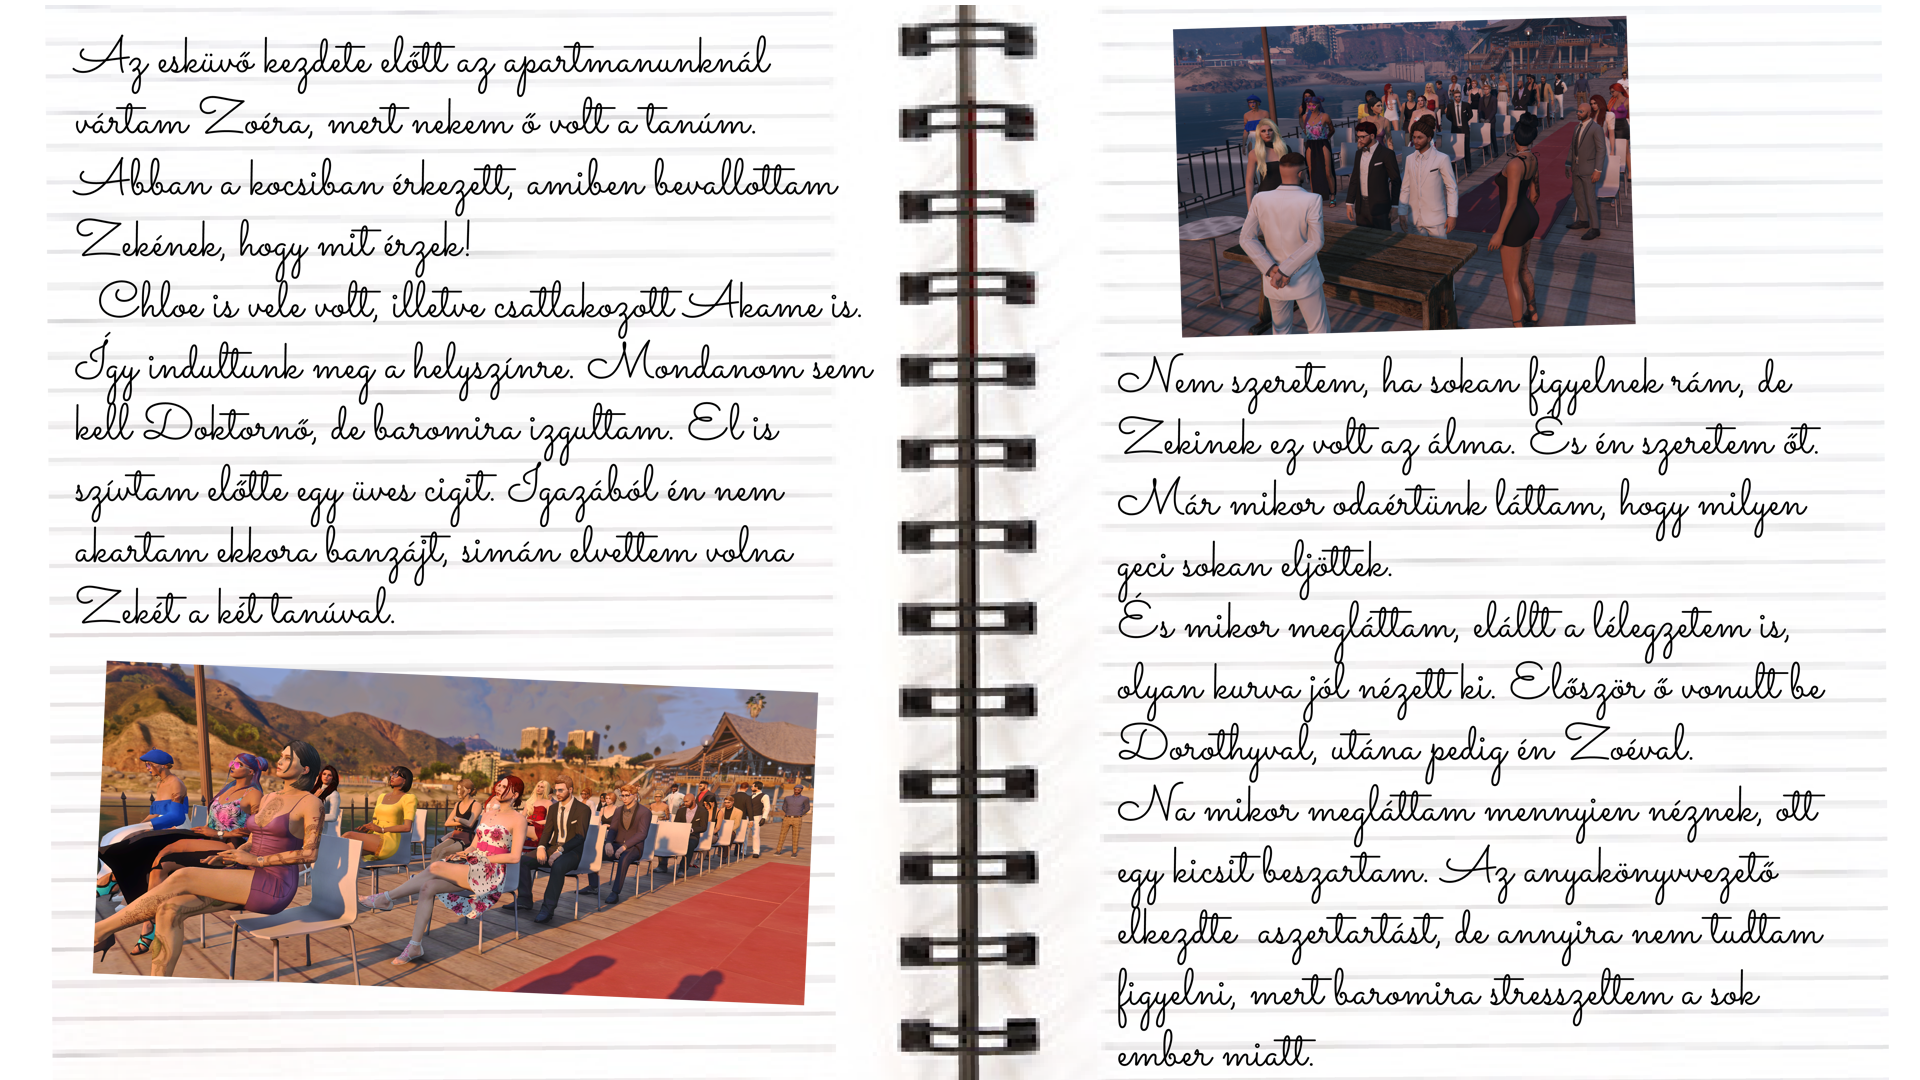 Az esküvő kezdete előtt az apartmanunknál
vártam Zoéra, mert nekem ő volt a tanúm.
Abban a kocsiban érkezett, amiben bevallottam
Zekének, hogy mit érzek!
Chloe is vele volt, illetve csatlakozott Akame is.
Így indultunk meg a helyszínre. Mondanom sem
kell Doktornő, de baromira izgultam. El is
szívtam előtte egy üves cigit. Igazából én nem
akartam ekkora banzájt, simán elvettem volna
Zekét a két tanúval.
Nem szeretem, ha sokan figyelnek rám, de
Zekinek ez volt az álma. És én szeretem őt.
Már mikor odaértünk láttam, hogy milyen
geci sokan eljöttek.
És mikor megláttam, elállt a lélegzetem is,
olyan kurva jól nézett ki. Először ő vonult be
Dorothyval, utána pedig én Zoéval.
Na mikor megláttam mennyien néznek, ott
egy kicsit beszartam. Az anyakönyvvezető
elkezdte aszertartást, de annyira nem tudtam
figyelni, mert baromira stresszeltem a sok
ember miatt.